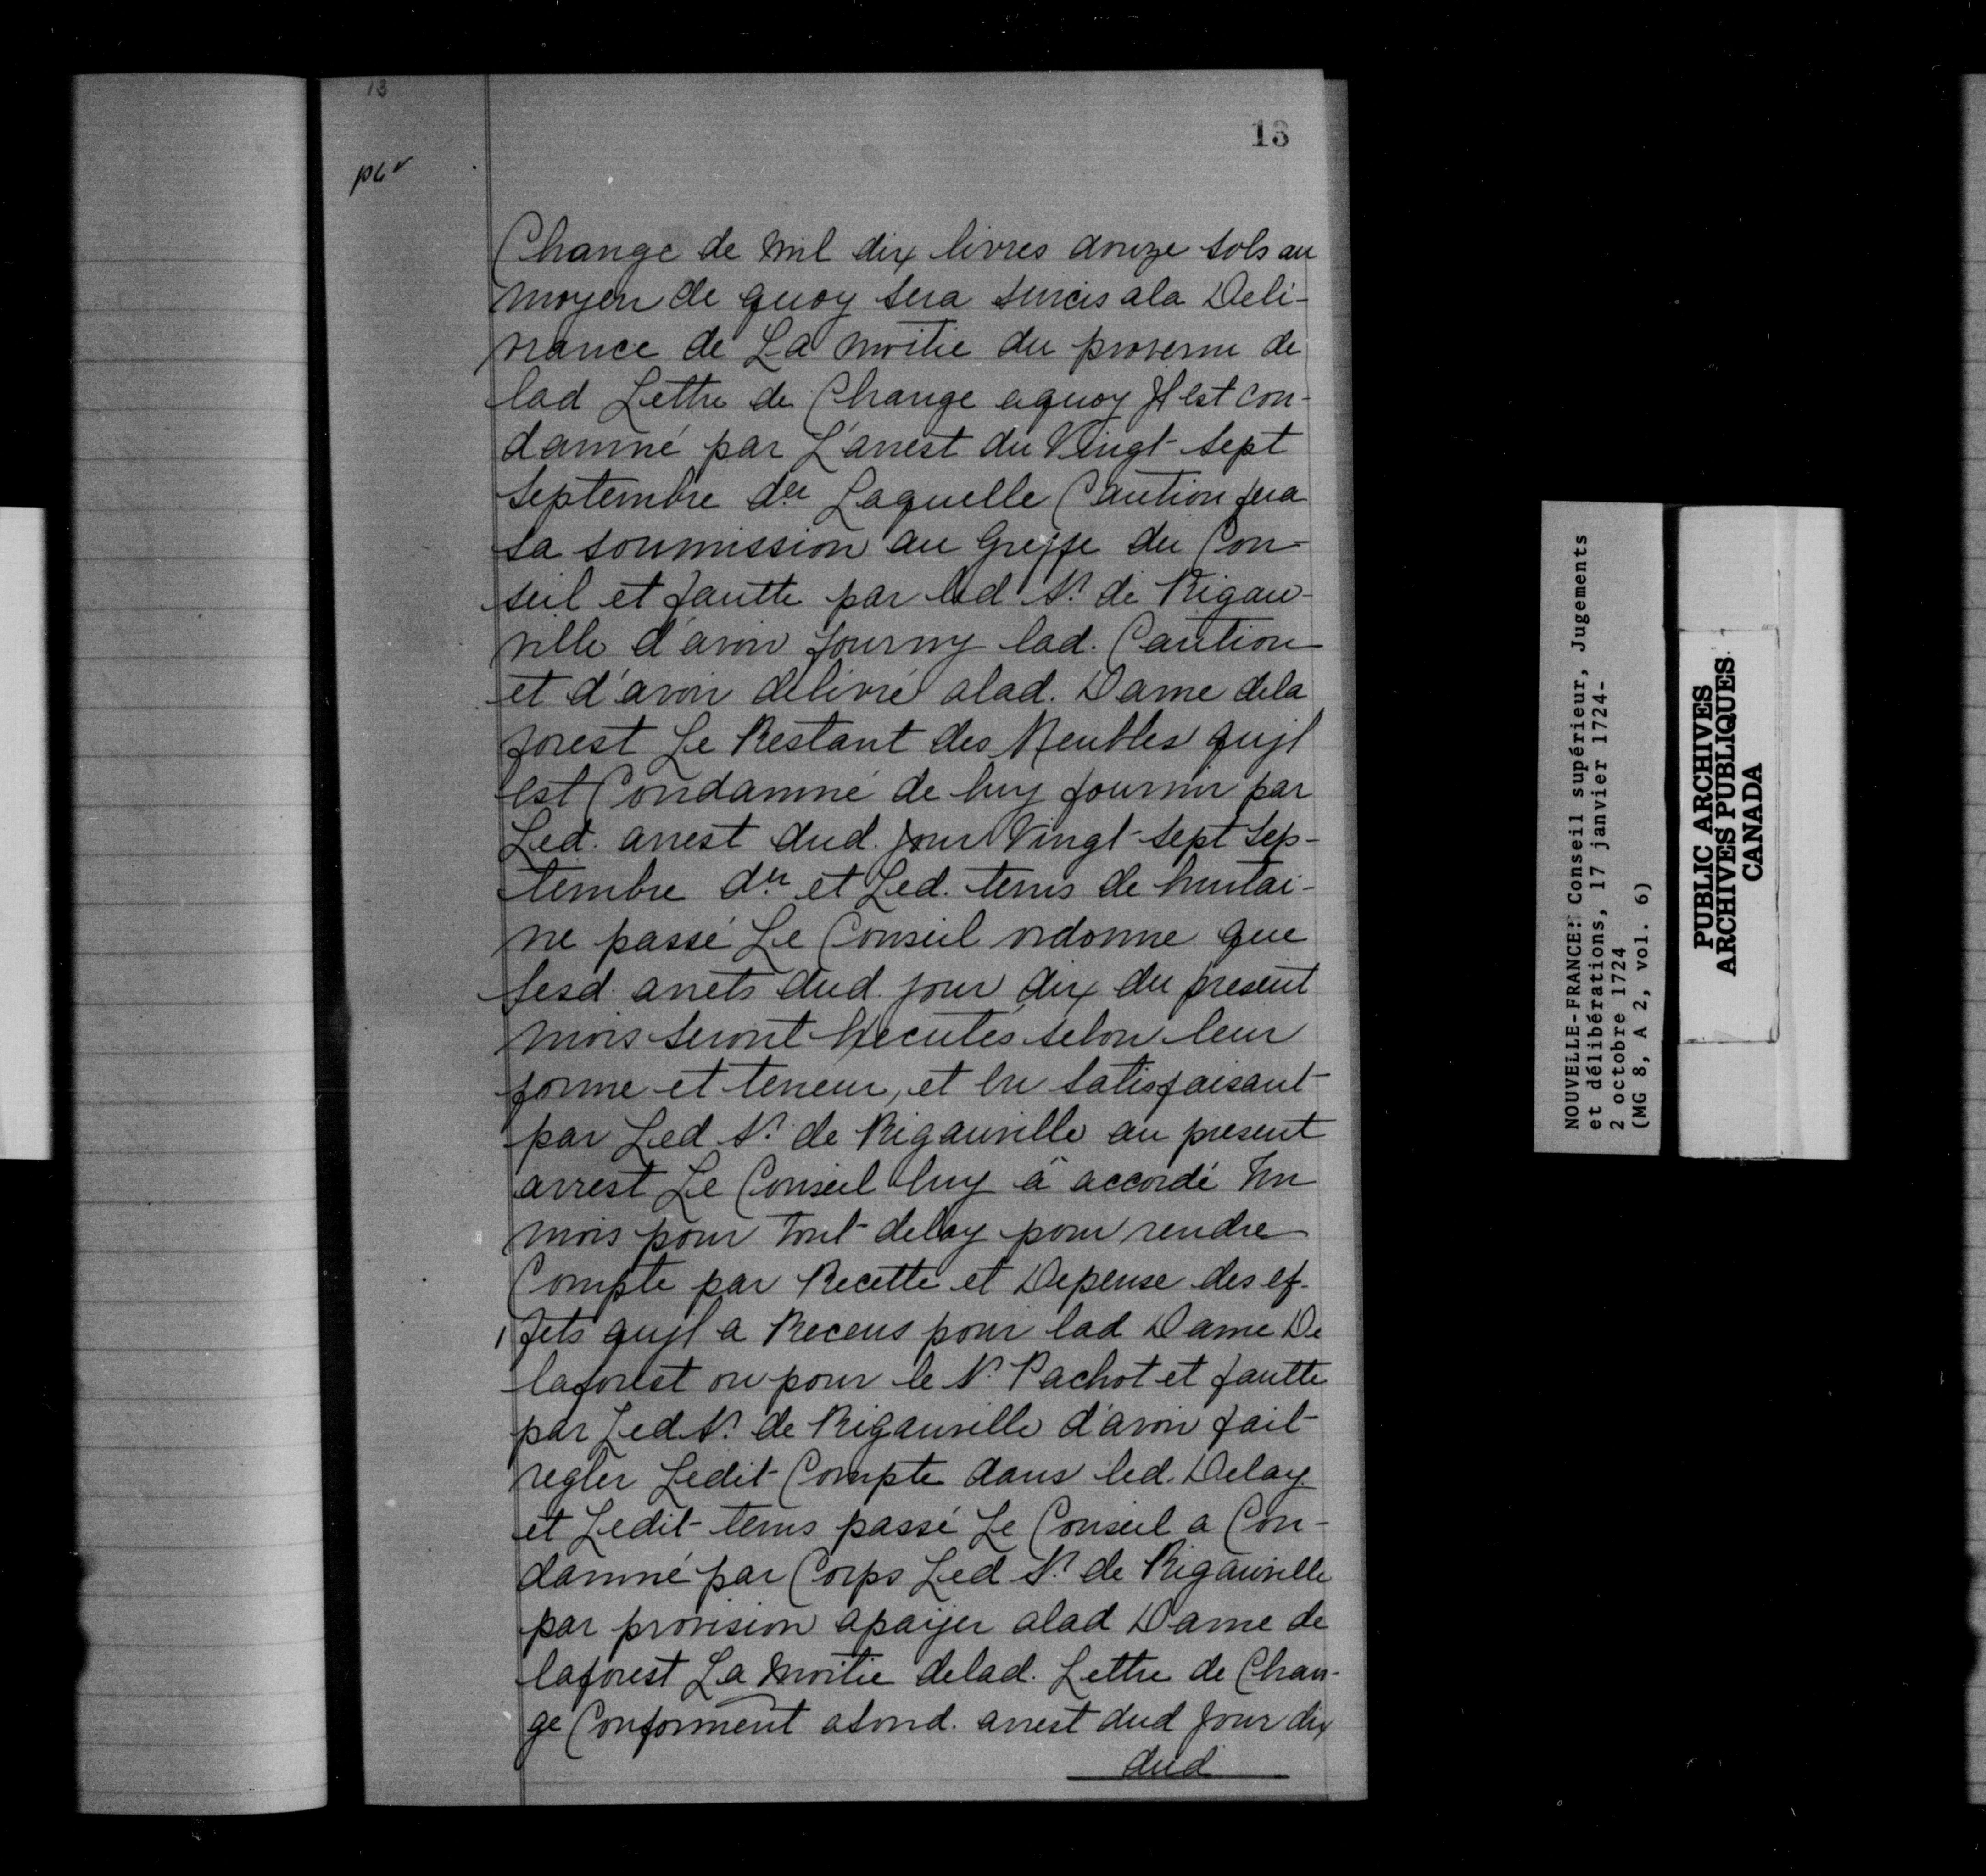 13
13
p6 v
Change de Mil dix livres douze sols au
moyen de quoy sera surcis ala Deli-
vrance de La moitie du provenu de
lad Lettre de Change aquoy Jl est con-
damné par L'arrest du Vingt-sept
septembre d.er Laquelle Caution fera
sa soumission au Greffe du Con-
seil et fautte par led S.r de Rigau-
ville d'avoir fourny lad. Caution
et d'avoir délivré alad. Dame dela
forest Le Restant des Meubles qu'jl
est Condamné de luy fournir par
Led. arrest dud. jour Vingt-sept sep-
tembre d.er et Led. tems de huitai-
ne passé Le Conseil ordonne que
sesd. arrets dud. jour dix du present
mois seront Execútés selon leur
forme et teneur, et En satisfaisant
par Led S.r de Rigauville au present
arrest Le Conseil luy à accordé Un
mois pour tout delay pour rendre
Compte par Recette et Depense des ef-
fets qu'jl a Receus pour lad Dame De
laforest ou pour le S.r Pachot et fautte
par Led S.r de Rigauville d'avoir fait
regler Ledit Compte dans led. Delay
et Ledit tems passé Le Conseil a Con-
damné par Corps Led S.r de Rigauville
par provision apaÿer alad Dame de
laforest La moitie delad. Lettre de Chan-
ge Conforment asond. arrest dud jour dix
dud
NOUVELLE-FRANCE: Conseil supérieur, Jugements
et délibérations, 17 janvier 1724-
2 octobre 1724
(MG 8, A 2, vol. 6)
PUBLIC ARCHIVES
ARCHIVES PUBLIQUES
CANADA